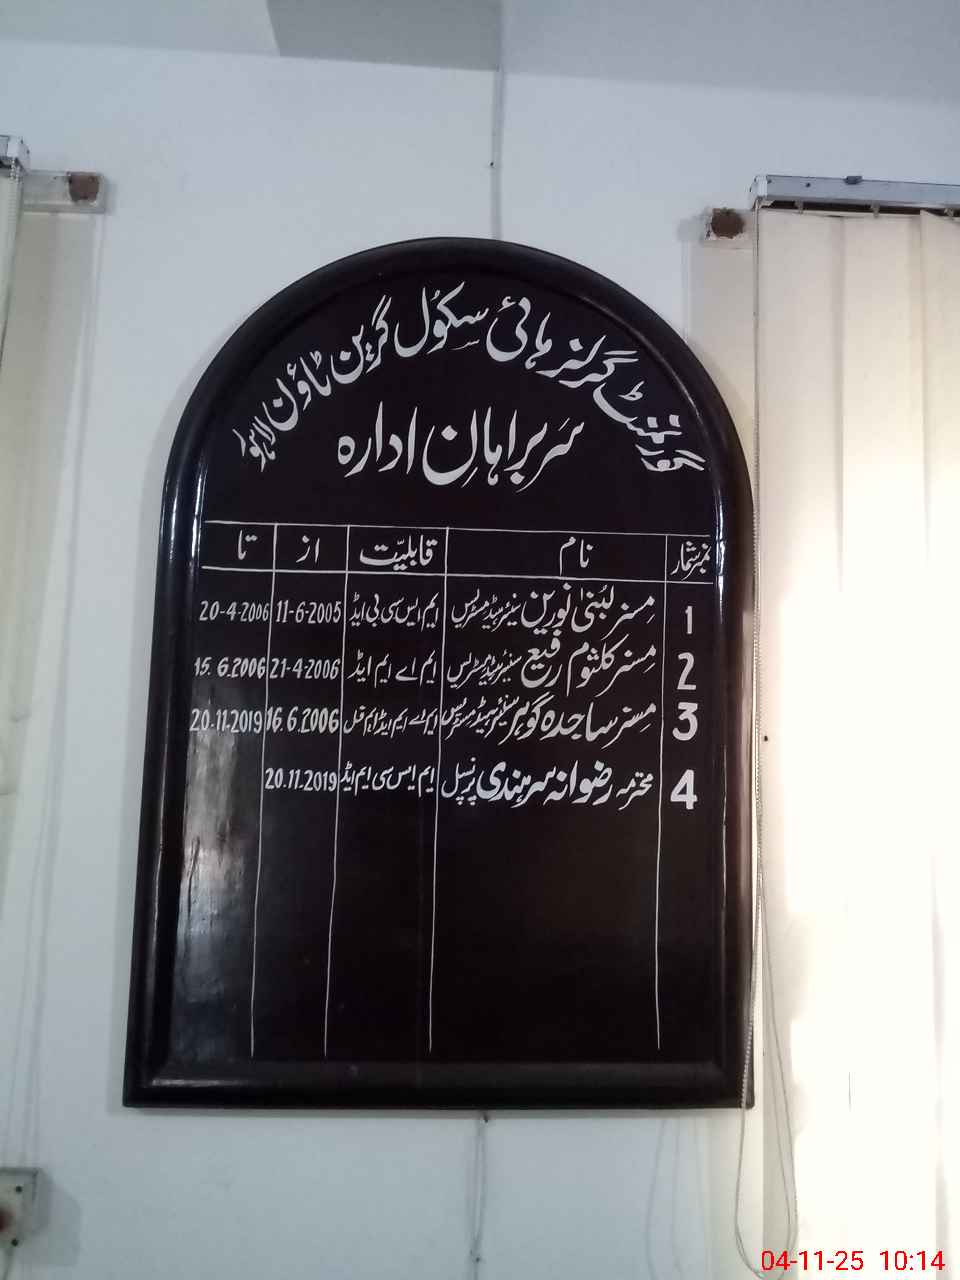 گورنمنٹ گرلز ہائی سکول گرین ٹاؤن لاہور
سربراہانِ ادارہ
نمبر شمار نام قابلیّت از تا
1 مسز لبنیٰ نورین سینئر ہیڈ مسٹریس ایم ایس سی بی ایڈ 11-6-2005 20-4-2006
2 مسز کلثوم رفیع سینئر ہیڈ مسٹریس ایم اے ایم ایڈ 21-4-2006 15.6.2006
3 مسز ساجدہ گوہر سینئر ہیڈ مسٹریس ایم اے ایم ایڈ ایم فل 16.6.2006 20-11-2019
4 محترمہ رضوانہ سرہندی پرنسپل ایم ایس سی ایم ایڈ 20.11.2019
04-11-25 10:14